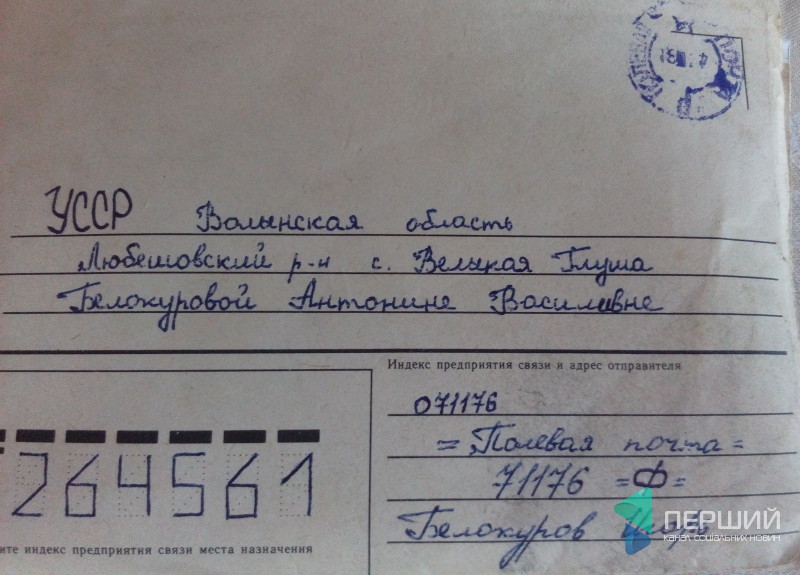 ПОЧТА
УССР Волынская область
Любешовский р-н с. Велыкая Глуша
Белокуровой Антонине Василивне
Индекс предприятия связи и адрес отправителя
071176
= Полевая почта =
71176 =Ф=
Белокуров Игорь
264561
ите индекс предприятия связи места назначения
ПЕРШИЙ
КАНАЛ СОЦІАЛЬНИХ НОВИН